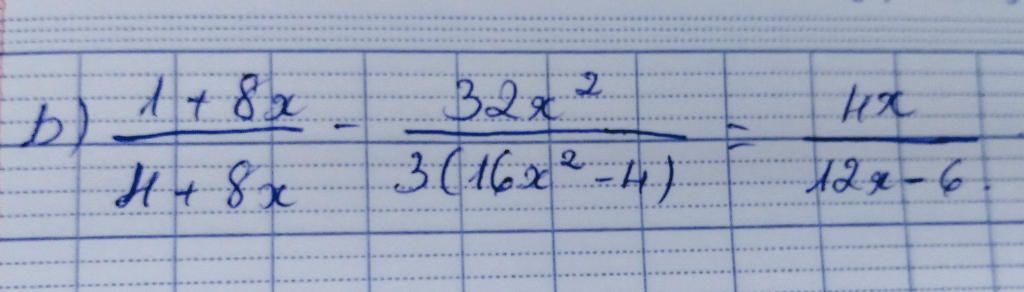 b) \frac{1 + 8x}{4 + 8x} - \frac{32x^2}{3(16x^2 - 4)} = \frac{4x}{12x - 6}.